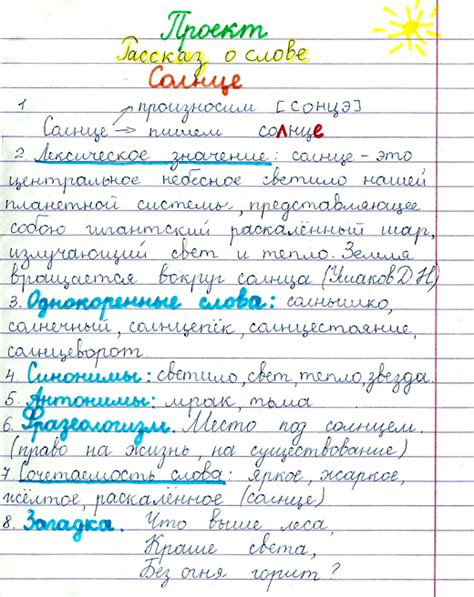 Проект
Рассказ о слове
Солнце
1. произносим [сонцэ]
Солнце → пишем солнце
2. Лексическое значение: солнце - это
центральное небесное светило нашей
планетной системы, представляющее
собою гигантский раскалённый шар,
излучающий свет и тепло. Земля
вращается вокруг солнца (Ушаков Д Н)
3. Однокоренные слова: солнышко,
солнечный, солнцепёк, солнцестояние,
солнцеворот.
4. Синонимы: светило, свет, тепло, звезда.
5. Антонимы: мрак, тьма
6. Фразеологизм. Место под солнцем.
(право на жизнь, на существование)
7 Сочетаемость слова: яркое, жаркое,
жёлтое, раскалённое (солнце)
8. Загадка. Что выше леса,
Краше света,
Без огня горит?